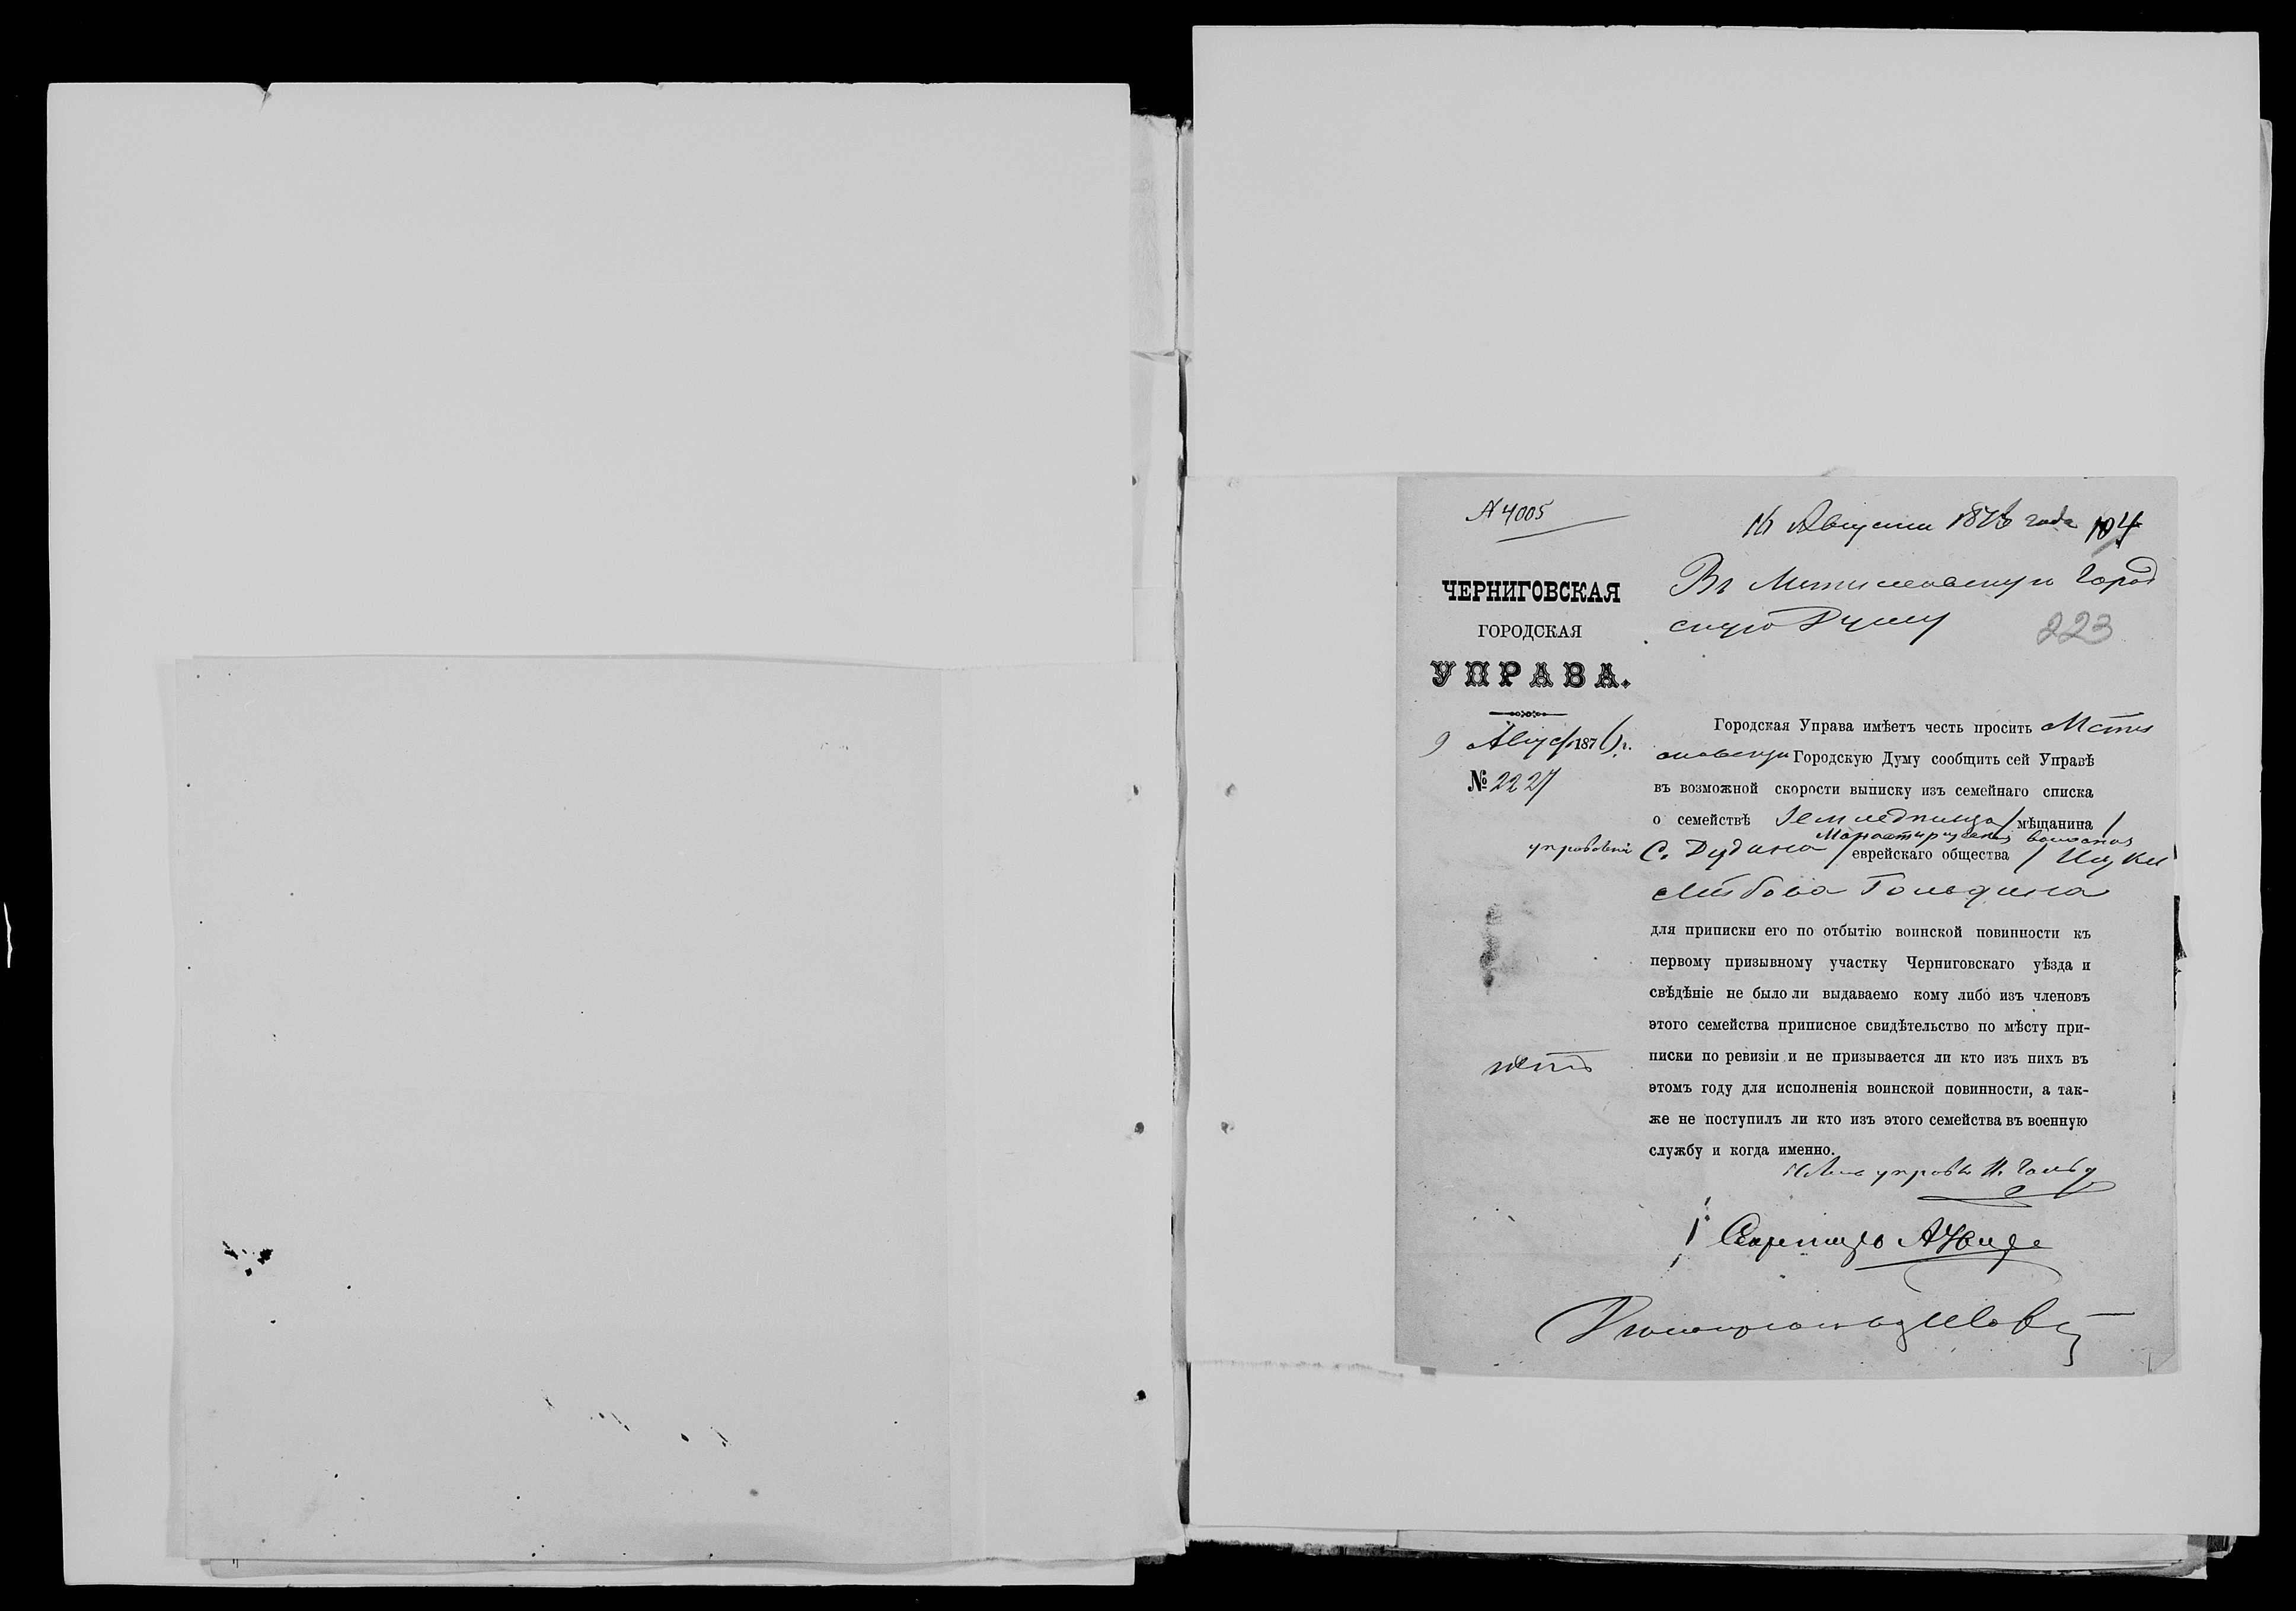 № 4005
16 Августа 1876 года
194
ЧЕРНИГОВСКАЯ
ГОРОДСКАЯ
УПРАВА.
9 Август 1876 г.
№ 2227
Въ Мстиславскую Город
скую Думу
223
Городская Управа имѣетъ честь просить Мсти
славскую Городскую Думу сообщить сей Управѣ
въ возможной скорости выписку изъ семейнаго списка
о семействѣ Земледельца / мѣщанина /
Монастырщенской волости
С. Дудина / еврейскаго общества /
Гольдина
для приписки его по отбытію воинской повинности къ
первому призывному участку Черниговскаго уѣзда и
свѣдѣніе не было ли выдаваемо кому либо изъ членовъ
этого семейства приписное свидѣтельство по мѣсту при-
писки по ревизіи и не призывается ли кто изъ нихъ въ
этомъ году для исполненія воинской повинности, а так-
же не поступилъ ли кто изъ этого семейства въ военную
службу и когда именно.
нетъ
Членъ управы
Секретарь